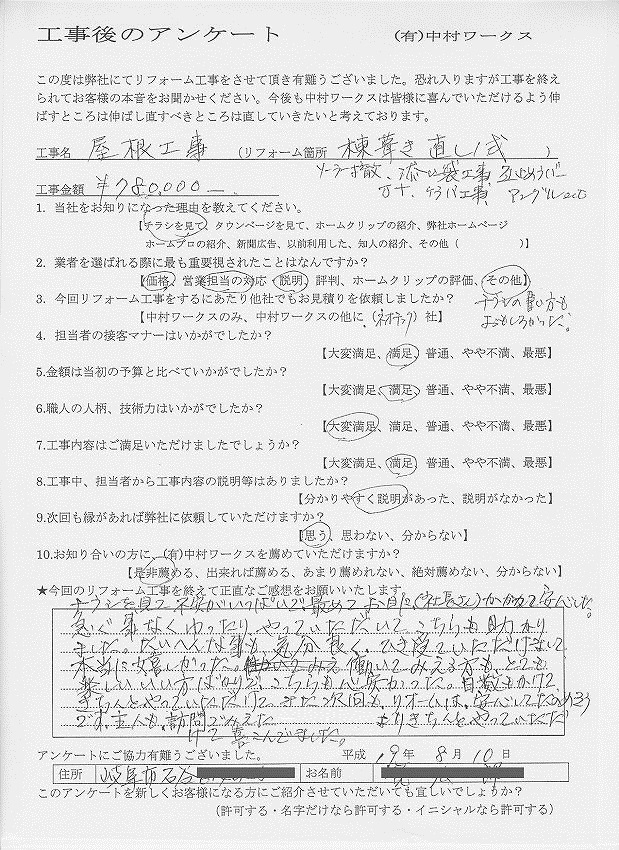 工事後のアンケート (有)中村ワークス
この度は弊社にてリフォーム工事をさせて頂き有難うございました。恐れ入りますが工事を終え
られてお客様の本音をお聞かせください。今後も中村ワークスは皆様に喜んでいただけるよう伸
ばすところは伸ばし直すべきところは直していきたいと考えております。
工事名 屋根工事 (リフォーム箇所 棟葺き直し1式 )
工事金額 ¥780,000-
1. 当社をお知りになった理由を教えてください。
【チラシを見て、タウンページを見て、ホームクリップの紹介、弊社ホームページ
ホームプロの紹介、新聞広告、以前利用した、知人の紹介、その他( )】
2. 業者を選ばれる際に最も重要視されたことはなんですか?
【価格、営業担当の対応・説明、評判、ホームクリップの評価、その他】
チラシの書い方も
おもしろかった。
3. 今回リフォーム工事をするにあたり他社でもお見積りを依頼しましたか?
【中村ワークスのみ、中村ワークスの他に( )社】
4. 担当者の接客マナーはいかがでしたか?
【大変満足、満足、普通、やや不満、最悪】
5.金額は当初の予算と比べていかがでしたか?
【大変満足、満足、普通、やや不満、最悪】
6.職人の人柄、技術力はいかがでしたか?
【大変満足、満足、普通、やや不満、最悪】
7.工事内容はご満足いただけましたでしょうか?
【大変満足、満足、普通、やや不満、最悪】
8.工事中、担当者から工事内容の説明等はありましたか?
【分かりやすく説明があった、説明がなかった】
9.次回も縁があれば弊社に依頼していただけますか?
【思う、思わない、分からない】
10.お知り合いの方に、(有)中村ワークスを薦めていただけますか?
【是非薦める、出来れば薦める、あまり薦めれない、絶対薦めない、分からない】
★今回のリフォーム工事を終えて正直なご感想をお願いいたします。
チラシを見て不安がいっぱいで、初めてお目に(社長さん)かかって安心した。
急ぐ事なくゆったりやっていただいて、こちらも助かり
ました。たいへんな事も、気分良く、ひき受ていただけまして
本当に嬉しかった。 みえ働いてみえる方も、とても
楽しいいい方ばかりで、こちらも心良かった。日数もかけて
きちんとやっていただけて、また次回も、リフォームは、安心して
です。主人も、訪問でみえた よりきちんとやっていただ
けて喜こんでました。
アンケートにご協力有難うございました。 平成 19年 8月 10日
住所 岐阜市石谷 お名前
このアンケートを新しくお客様になる方にご紹介させていただいても宜しいでしょうか?
(許可する・名字だけなら許可する・イニシャルなら許可する)